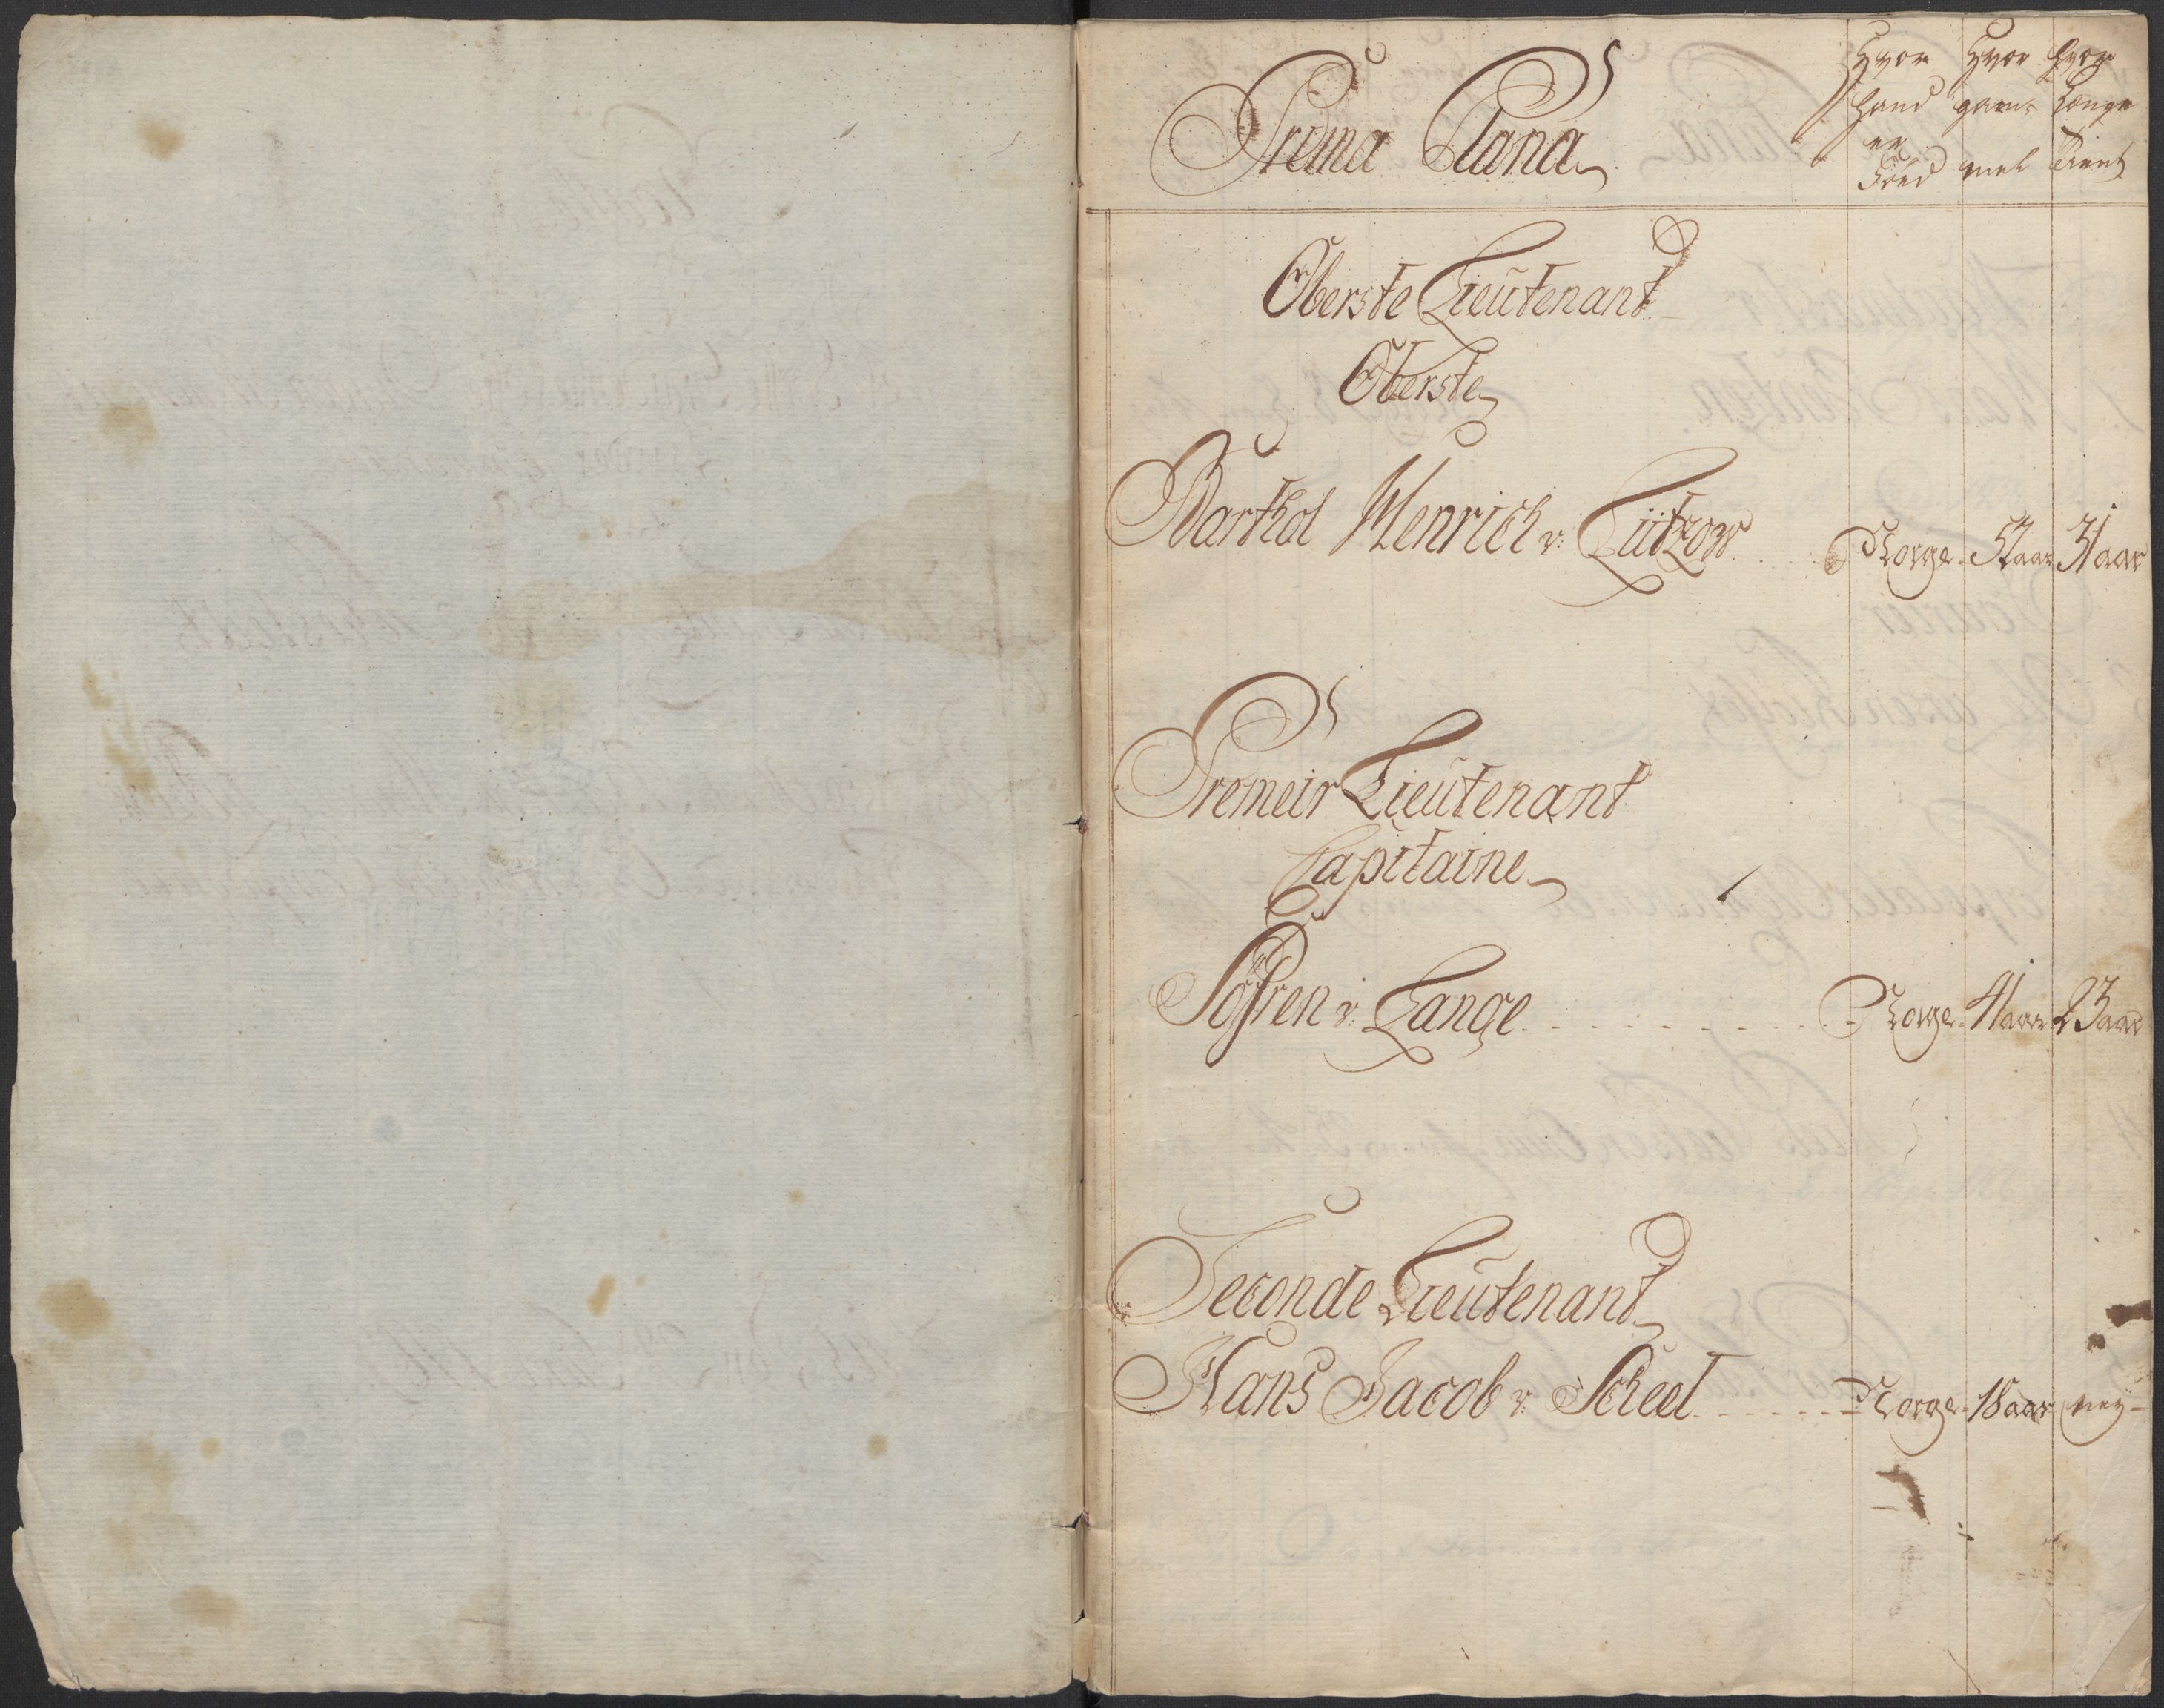 Prima Plana
Hvor Hvor hvor
Hand gam- Længe
er
Föed mel Tient
Oberste Lieütenant
Oberste
Barthol Henrich v: Lützow Norge 51 aar 31 aar
Premeir Lieütenant
Capitaine
Söfren v: Lange Norge 41 aar 23 aar
Seconde Lieütenant
Hans Jacob v: Scheel Norge 18 aar ney